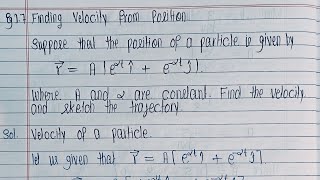 Q 3.7 Finding Velocity from Position
Suppose that the position of a particle is given by
r⃗ = A [e^αt î + e^-αt ĵ].
Where A and α are constant. Find the velocity
and sketch the trajectory
Sol. Velocity of a particle.
let us given that r⃗ = A [e^αt î + e^-αt ĵ].